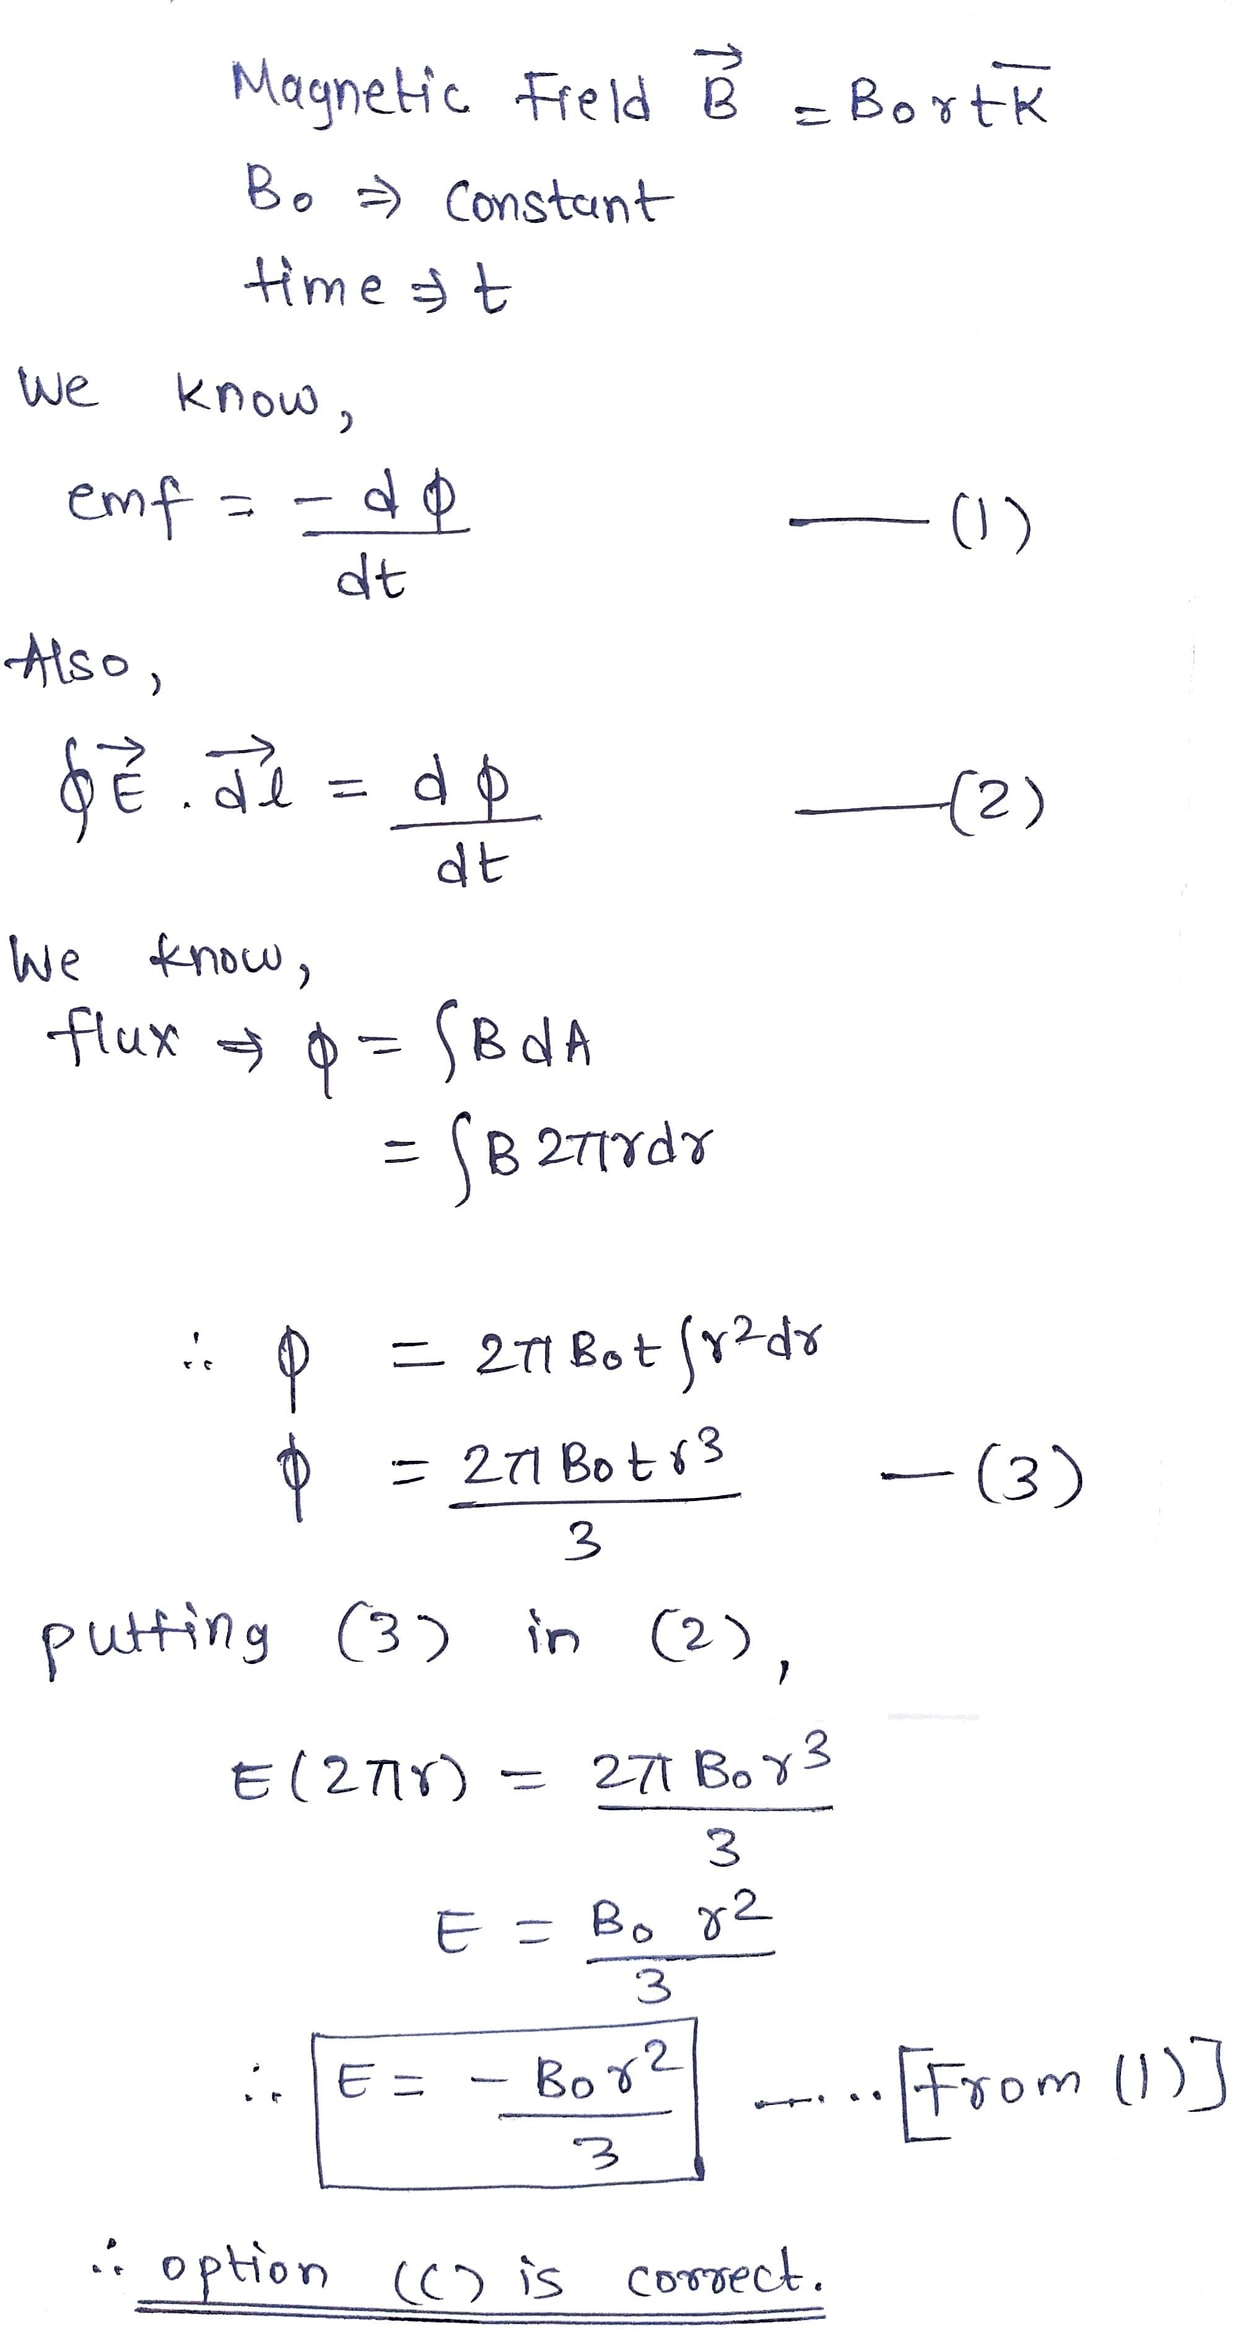 Magnetic Field B⃗ = B₀rtk̄
B₀ ⇒ Constant
time ⇒ t
We know,
emf = -dφ/dt —(1)
Also,
∮E⃗.dl⃗ = dφ/dt —(2)
We know,
flux ⇒ φ = ∫BdA
= ∫B2πrdr
∴ φ = 2πB₀t∫r2dr
φ = 2πB₀tr3/3 —(3)
putting (3) in (2),
E(2πr) = 2πB₀r3/3
E = B₀r2/3
∴ E = -B₀r2/3 ..... [From (1)]
∴ option (C) is correct.